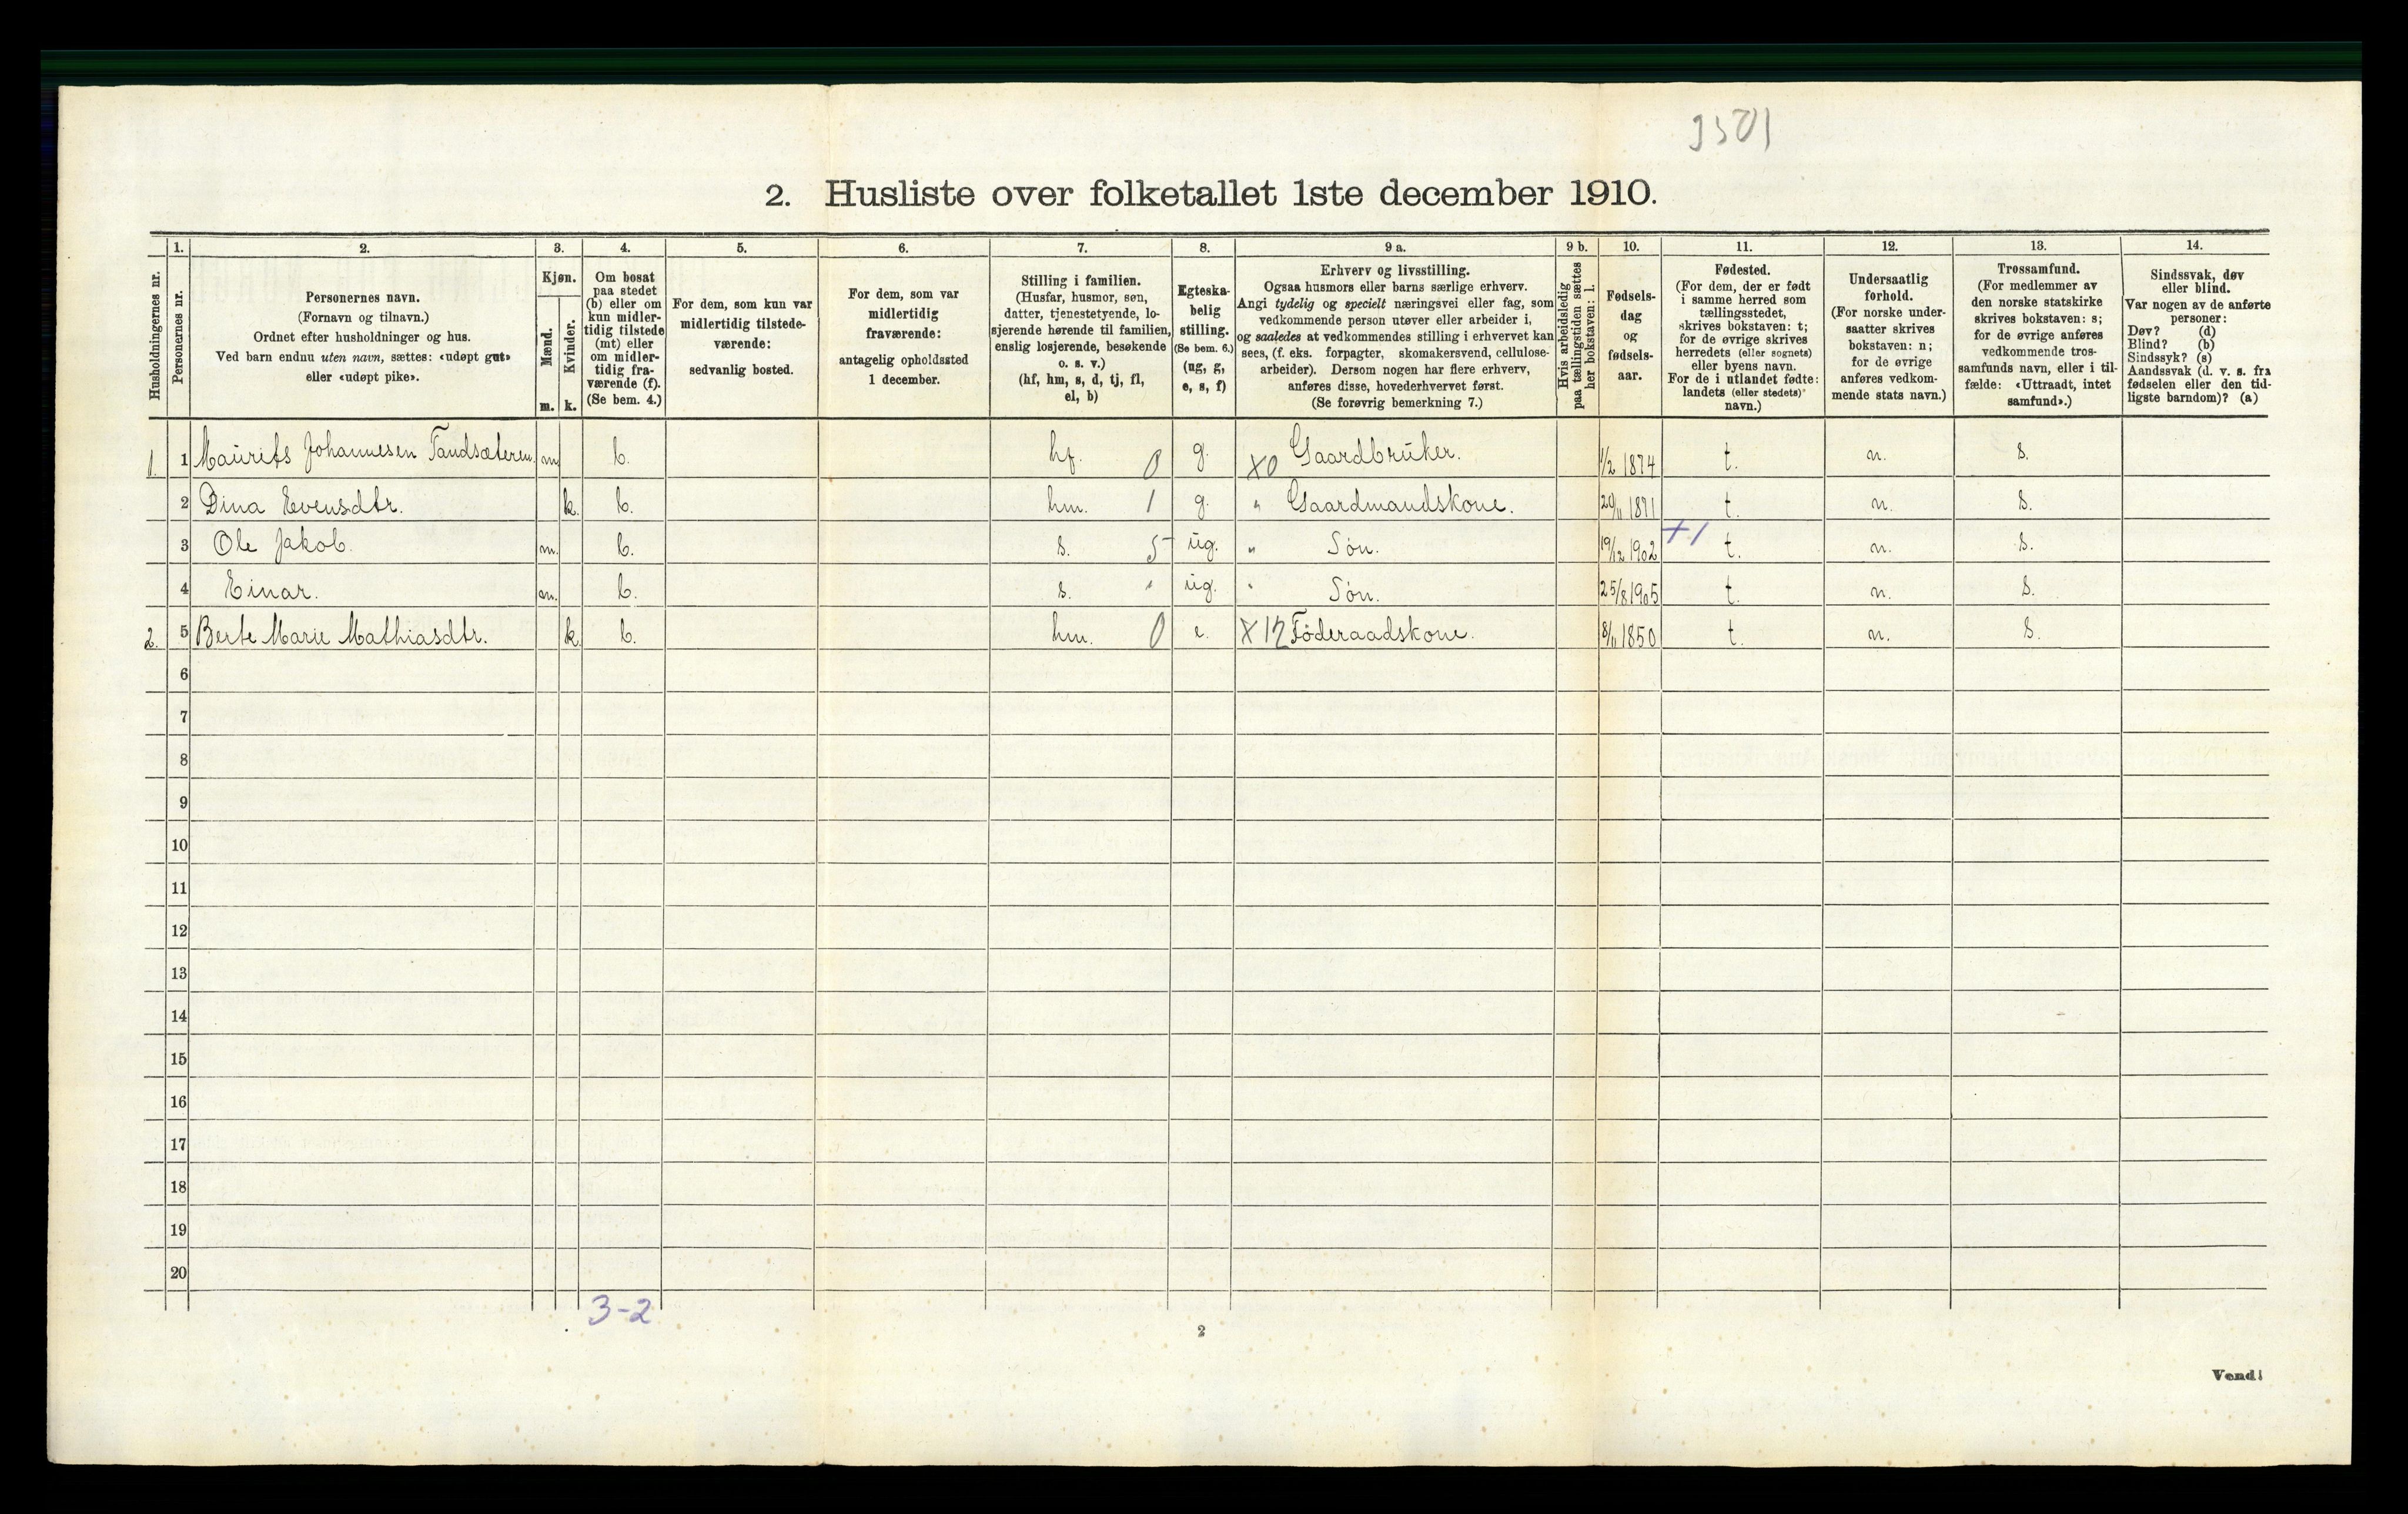 3501
2. Husliste over folketallet 1ste december 1910.
1. 2. 3. 4. 5. 6. 7. 8. 9 a. 9 b. 10. 11. 12. 13. 14.
Husholdningernes nr.
Personernes nr.
Personernes navn.
(Fornavn og tilnavn.)
Ordnet efter husholdninger og hus.
Ved barn endnu uten navn, sættes: «udøpt gut»
eller «udøpt pike».
Kjøn.
Mænd.
Kvinder.
m. k.
Om bosat
paa stedet
(b) eller om
kun midler-
tidig tilstede
(mt) eller
om midler-
tidig fra-
værende (f).
(Se bem. 4.)
For dem, som kun var
midlertidig tilstede-
værende:
sedvanlig bosted.
For dem, som var
midlertidig
fraværende:
antagelig opholdssted
1 december.
Stilling i familien.
(Husfar, husmor, søn,
datter, tjenestetyende, lo-
sjerende hørende til familien,
enslig losjerende, besøkende
o. s. v.)
(hf, hm, s, d, tj, fl,
el, b)
Egteska-
belig
stilling.
(Se bem. 6.)
(ug, g,
e, s, f)
Erhverv og livsstilling.
Ogsaa husmors eller barns særlige erhverv.
Angi tydelig og specielt næringsvei eller fag, som
vedkommende person utøver eller arbeider i,
og saaledes at vedkommendes stilling i erhvervet kan
sees, (f. eks. forpagter, skomakersvend, cellulose-
arbeider). Dersom nogen har flere erhverv,
anføres disse, hovederhvervet først.
(Se forøvrig bemerkning 7.)
Hvis arbeidsledig
paa tællingstiden sættes
her bokstaven: l.
Fødsels-
dag
og
fødsels-
aar.
Fødested.
(For dem, der er født
i samme herred som
tællingsstedet,
skrives bokstaven: t;
for de øvrige skrives
herredets (eller sognets)
eller byens navn.
For de i utlandet fødte:
landets (eller stedets)
navn.)
Undersaatlig
forhold.
(For norske under-
saatter skrives
bokstaven: n;
for de øvrige
anføres vedkom-
mende stats navn.)
Trossamfund.
(For medlemmer av
den norske statskirke
skrives bokstaven: s;
for de øvrige anføres
vedkommende tros-
samfunds navn, eller i til-
fælde: «Uttraadt, intet
samfund».)
Sindssvak, døv
eller blind.
Var nogen av de anførte
personer:
Døv? (d)
Blind? (b)
Sindssyk? (s)
Aandssvak (d. v. s. fra
fødselen eller den tid-
ligste barndom)? (a)
1. 1 Maurits Johannesen Tandsæteren. m. b. hf. 0 g. X0 Gaardbruker. 1/2 1874 t. n. s.
2 Dina Evensdtr. k. b. hm. 1 g. " Gaardmandskone. 20/11 1871 t. n. s.
3 Ole Jakob. m. b. s. 5 ug. " Søn. 19/12 1902 +1 t. n. s.
4 Einar. m. b. s. " ug. " Søn. 25/8 1905 t. n. s.
2. 5 Berte Marie Mathiasdtr. k. b. hm. 0 e. X12 Föderaadskone. 8/11 1850 t. n. s.
6
7
8
9
10
11
12
13
14
15
16
17
18
19
20
3-2
2
Vend!